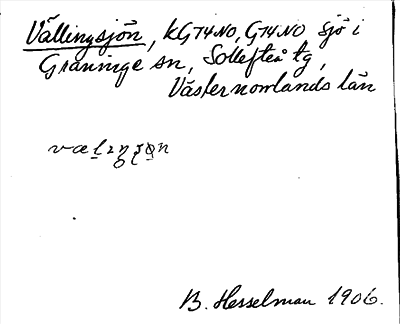 Vällingsjön, KG74NO, G74NO sjö i
Graninge sn, Sollefteå tg,
Västernorrlands län
B. Hesselman 1906.